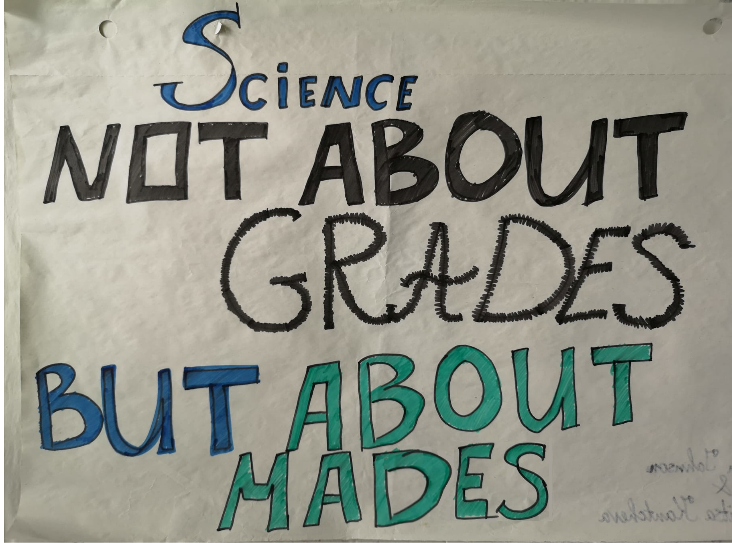 Science
NOT ABOUT
GRADES
BUT ABOUT
MADES
Johnson
&
Kantcheva